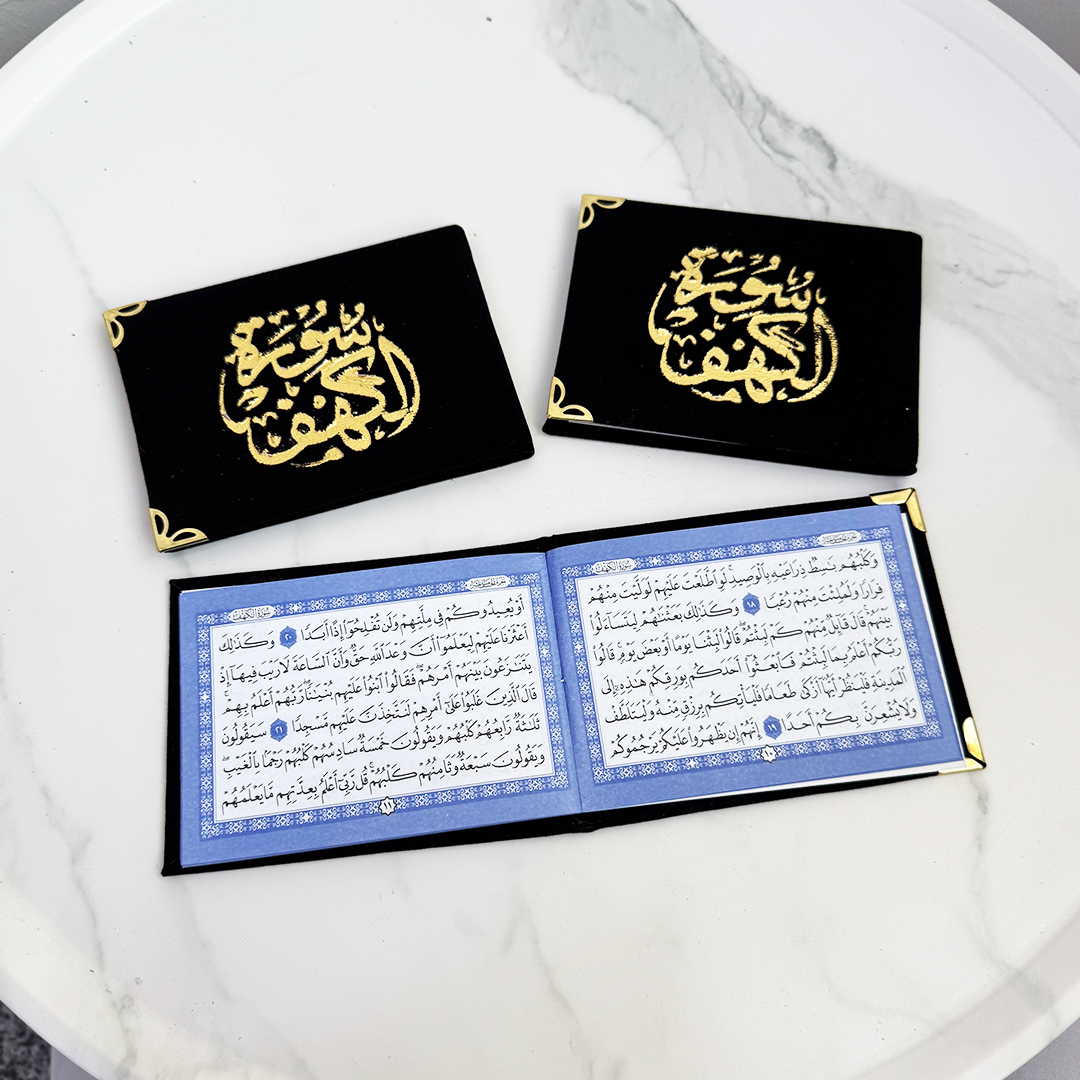 سُورَةُ
الْكَهْفِ
سُورَةُ
الْكَهْفِ
سُورَةُ الْكَهْفِ
وَكَلْبُهُم بَٰسِطٌ ذِرَاعَيْهِ بِالْوَصِيدِ ۚ لَوِ اطَّلَعْتَ عَلَيْهِمْ لَوَلَّيْتَ مِنْهُمْ
فِرَارًا وَلَمُلِئْتَ مِنْهُمْ رُعْبًا ١٨ وَكَذَٰلِكَ بَعَثْنَٰهُمْ لِيَتَسَآءَلُوا
بَيْنَهُمْ ۚ قَالَ قَآئِلٌ مِّنْهُمْ كَمْ لَبِثْتُمْ ۖ قَالُوا لَبِثْنَا يَوْمًا أَوْ بَعْضَ يَوْمٍ ۚ قَالُوا
رَبُّكُمْ أَعْلَمُ بِمَا لَبِثْتُمْ فَابْعَثُوٓا أَحَدَكُم بِوَرِقِكُمْ هَٰذِهِۦٓ إِلَى
الْمَدِينَةِ فَلْيَنظُرْ أَيُّهَآ أَزْكَىٰ طَعَامًا فَلْيَأْتِكُم بِرِزْقٍ مِّنْهُ وَلْيَتَلَطَّفْ
وَلَا يُشْعِرَنَّ بِكُمْ أَحَدًا ١٩ إِنَّهُمْ إِن يَظْهَرُوا عَلَيْكُمْ يَرْجُمُوكُمْ
١٠
سُورَةُ الْكَهْفِ
أَوْ يُعِيدُوكُمْ فِي مِلَّتِهِمْ وَلَن تُفْلِحُوٓا إِذًا أَبَدًا ٢٠ وَكَذَٰلِكَ
أَعْثَرْنَا عَلَيْهِمْ لِيَعْلَمُوٓا أَنَّ وَعْدَ اللَّهِ حَقٌّ وَأَنَّ السَّاعَةَ لَا رَيْبَ فِيهَآ إِذْ
يَتَنَٰزَعُونَ بَيْنَهُمْ أَمْرَهُمْ ۖ فَقَالُوا ابْنُوا عَلَيْهِم بُنْيَٰنًا ۖ رَّبُّهُمْ أَعْلَمُ بِهِمْ ۚ
قَالَ الَّذِينَ غَلَبُوا عَلَىٰٓ أَمْرِهِمْ لَنَتَّخِذَنَّ عَلَيْهِم مَّسْجِدًا ٢١ سَيَقُولُونَ
ثَلَٰثَةٌ رَّابِعُهُمْ كَلْبُهُمْ وَيَقُولُونَ خَمْسَةٌ سَادِسُهُمْ كَلْبُهُمْ رَجْمًا بِالْغَيْبِ ۖ
وَيَقُولُونَ سَبْعَةٌ وَثَامِنُهُمْ كَلْبُهُمْ ۚ قُل رَّبِّىٓ أَعْلَمُ بِعِدَّتِهِم مَّا يَعْلَمُهُمْ
١١